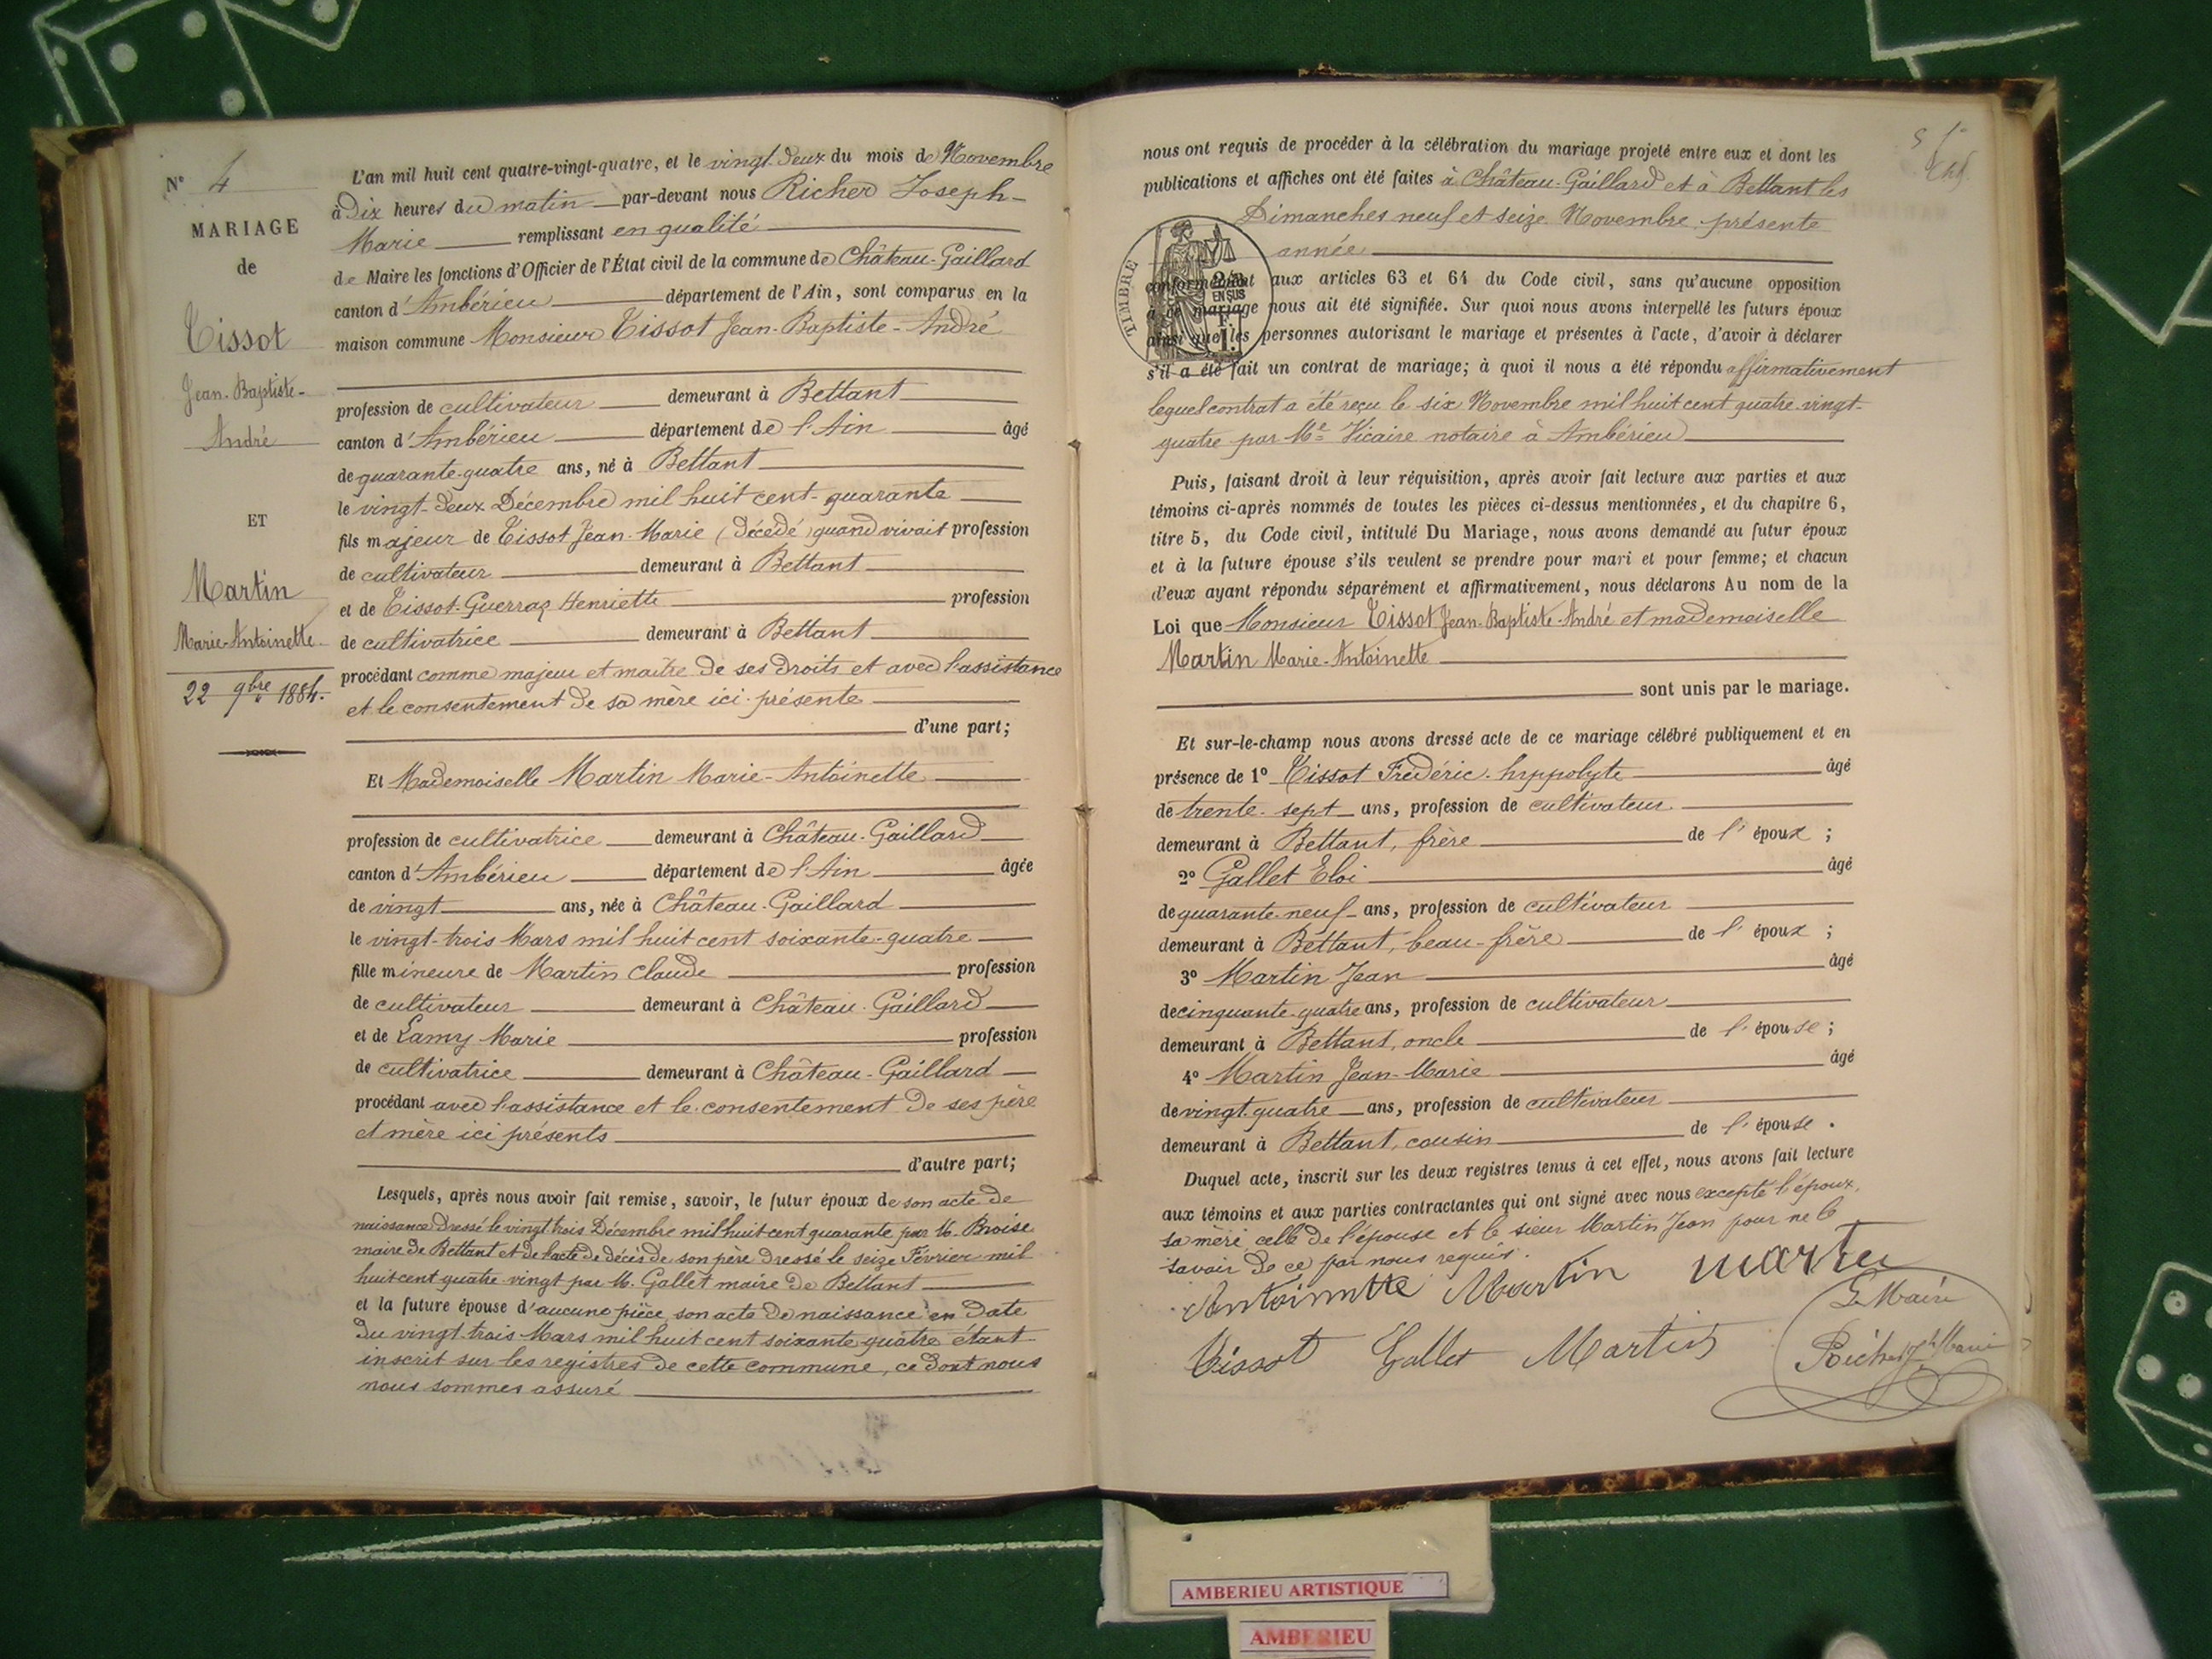 N° 4
MARIAGE
de
Tissot
Jean-Baptiste-
André
ET
Martin
Marie-Antoinette
22 9bre 1884.
L'an mil huit cent quatre-vingt-quatre, et le vingt-deux du mois de Novembre
à Dix heures du matin par-devant nous Richerd Joseph-
Marie remplissant en qualité
de Maire les fonctions d'Officier de l'État civil de la commune de Château-Gaillard
canton d'Ambérieu département de l'Ain, sont comparus en la
maison commune Monsieur Tissot Jean-Baptiste-André
profession de cultivateur demeurant à Bettant
canton d'Ambérieu département de l'Ain âgé
de quarante-quatre ans, né à Bettant
le vingt-deux Décembre mil huit cent-quarante
fils majeur de Tissot Jean-Marie (décédé) quand vivait profession
de cultivateur demeurant à Bettant
et de Tissot-Guerraz Henriette profession
de cultivatrice demeurant à Bettant
procédant comme majeur et maître de ses droits et avec l'assistance
et le consentement de sa mère ici présente
d'une part;
Et Mademoiselle Martin Marie-Antoinette
profession de cultivatrice demeurant à Château-Gaillard
canton d'Ambérieu département de l'Ain âgée
de vingt ans, née à Château-Gaillard
le vingt-trois Mars mil huit cent soixante-quatre
fille mineure de Martin Claude profession
de cultivateur demeurant à Château-Gaillard
et de Lamy Marie profession
de cultivatrice demeurant à Château-Gaillard
procédant avec l'assistance et le consentement de ses père
et mère ici présents
d'autre part;
Lesquels, après nous avoir fait remise, savoir, le futur époux de son acte de
naissance dressé le vingt trois Décembre mil huit cent quarante par M. Broise
maire de Bettant et de l'acte de décès de son père dressé le seize Février mil
huit cent quatre-vingt par M. Gallet maire de Bettant
et la future épouse d'aucune pièce son acte de naissance en date
du vingt-trois Mars mil huit cent soixante quatre étant
inscrit sur les registres de cette commune, ce dont nous
nous sommes assuré
nous ont requis de procéder à la célébration du mariage projeté entre eux et dont les
publications et affiches ont été faites à Château-Gaillard et à Bettant les
Dimanches neuf et seize Novembre présente
année
TIMBRE
EN SUS
conformément aux articles 63 et 64 du Code civil, sans qu'aucune opposition
à ce mariage nous ait été signifiée. Sur quoi nous avons interpellé les futurs époux
ainsi que les personnes autorisant le mariage et présentes à l'acte, d'avoir à déclarer
s'il a été fait un contrat de mariage; à quoi il nous a été répondu affirmativement
lequel contrat a été reçu le six Novembre mil huit cent quatre-vingt-
quatre par Me Vicaire notaire à Ambérieu
Puis, faisant droit à leur réquisition, après avoir fait lecture aux parties et aux
témoins ci-après nommés de toutes les pièces ci-dessus mentionnées, et du chapitre 6,
titre 5, du Code civil, intitulé Du Mariage, nous avons demandé au futur époux
et à la future épouse s'ils veulent se prendre pour mari et pour femme; et chacun
d'eux ayant répondu séparément et affirmativement, nous déclarons Au nom de la
Loi que Monsieur Tissot Jean-Baptiste-André et mademoiselle
Martin Marie-Antoinette
sont unis par le mariage.
Et sur-le-champ nous avons dressé acte de ce mariage célébré publiquement et en
présence de 1° Tissot Frédéric-hyppolyte âgé
de trente-sept ans, profession de cultivateur
demeurant à Bettant, frère de l'époux;
2° Gallet Eloi âgé
de quarante-neuf ans, profession de cultivateur
demeurant à Bettant, beau-frère de l'époux;
3° Martin Jean âgé
de cinquante-quatre ans, profession de cultivateur
demeurant à Bettant, oncle de l'épouse;
4° Martin Jean-Marie âgé
de vingt-quatre ans, profession de cultivateur
demeurant à Bettant, cousin de l'épouse.
Duquel acte, inscrit sur les deux registres tenus à cet effet, nous avons fait lecture
aux témoins et aux parties contractantes qui ont signé avec nous excepté l'époux,
sa mère, celle de l'épouse et le sieur Martin Jean pour ne le
savoir de ce par nous requis.
Antoinette Martin
Le Maire
Tissot Gallet Martin
AMBERIEU ARTISTIQUE
AMBERIEU